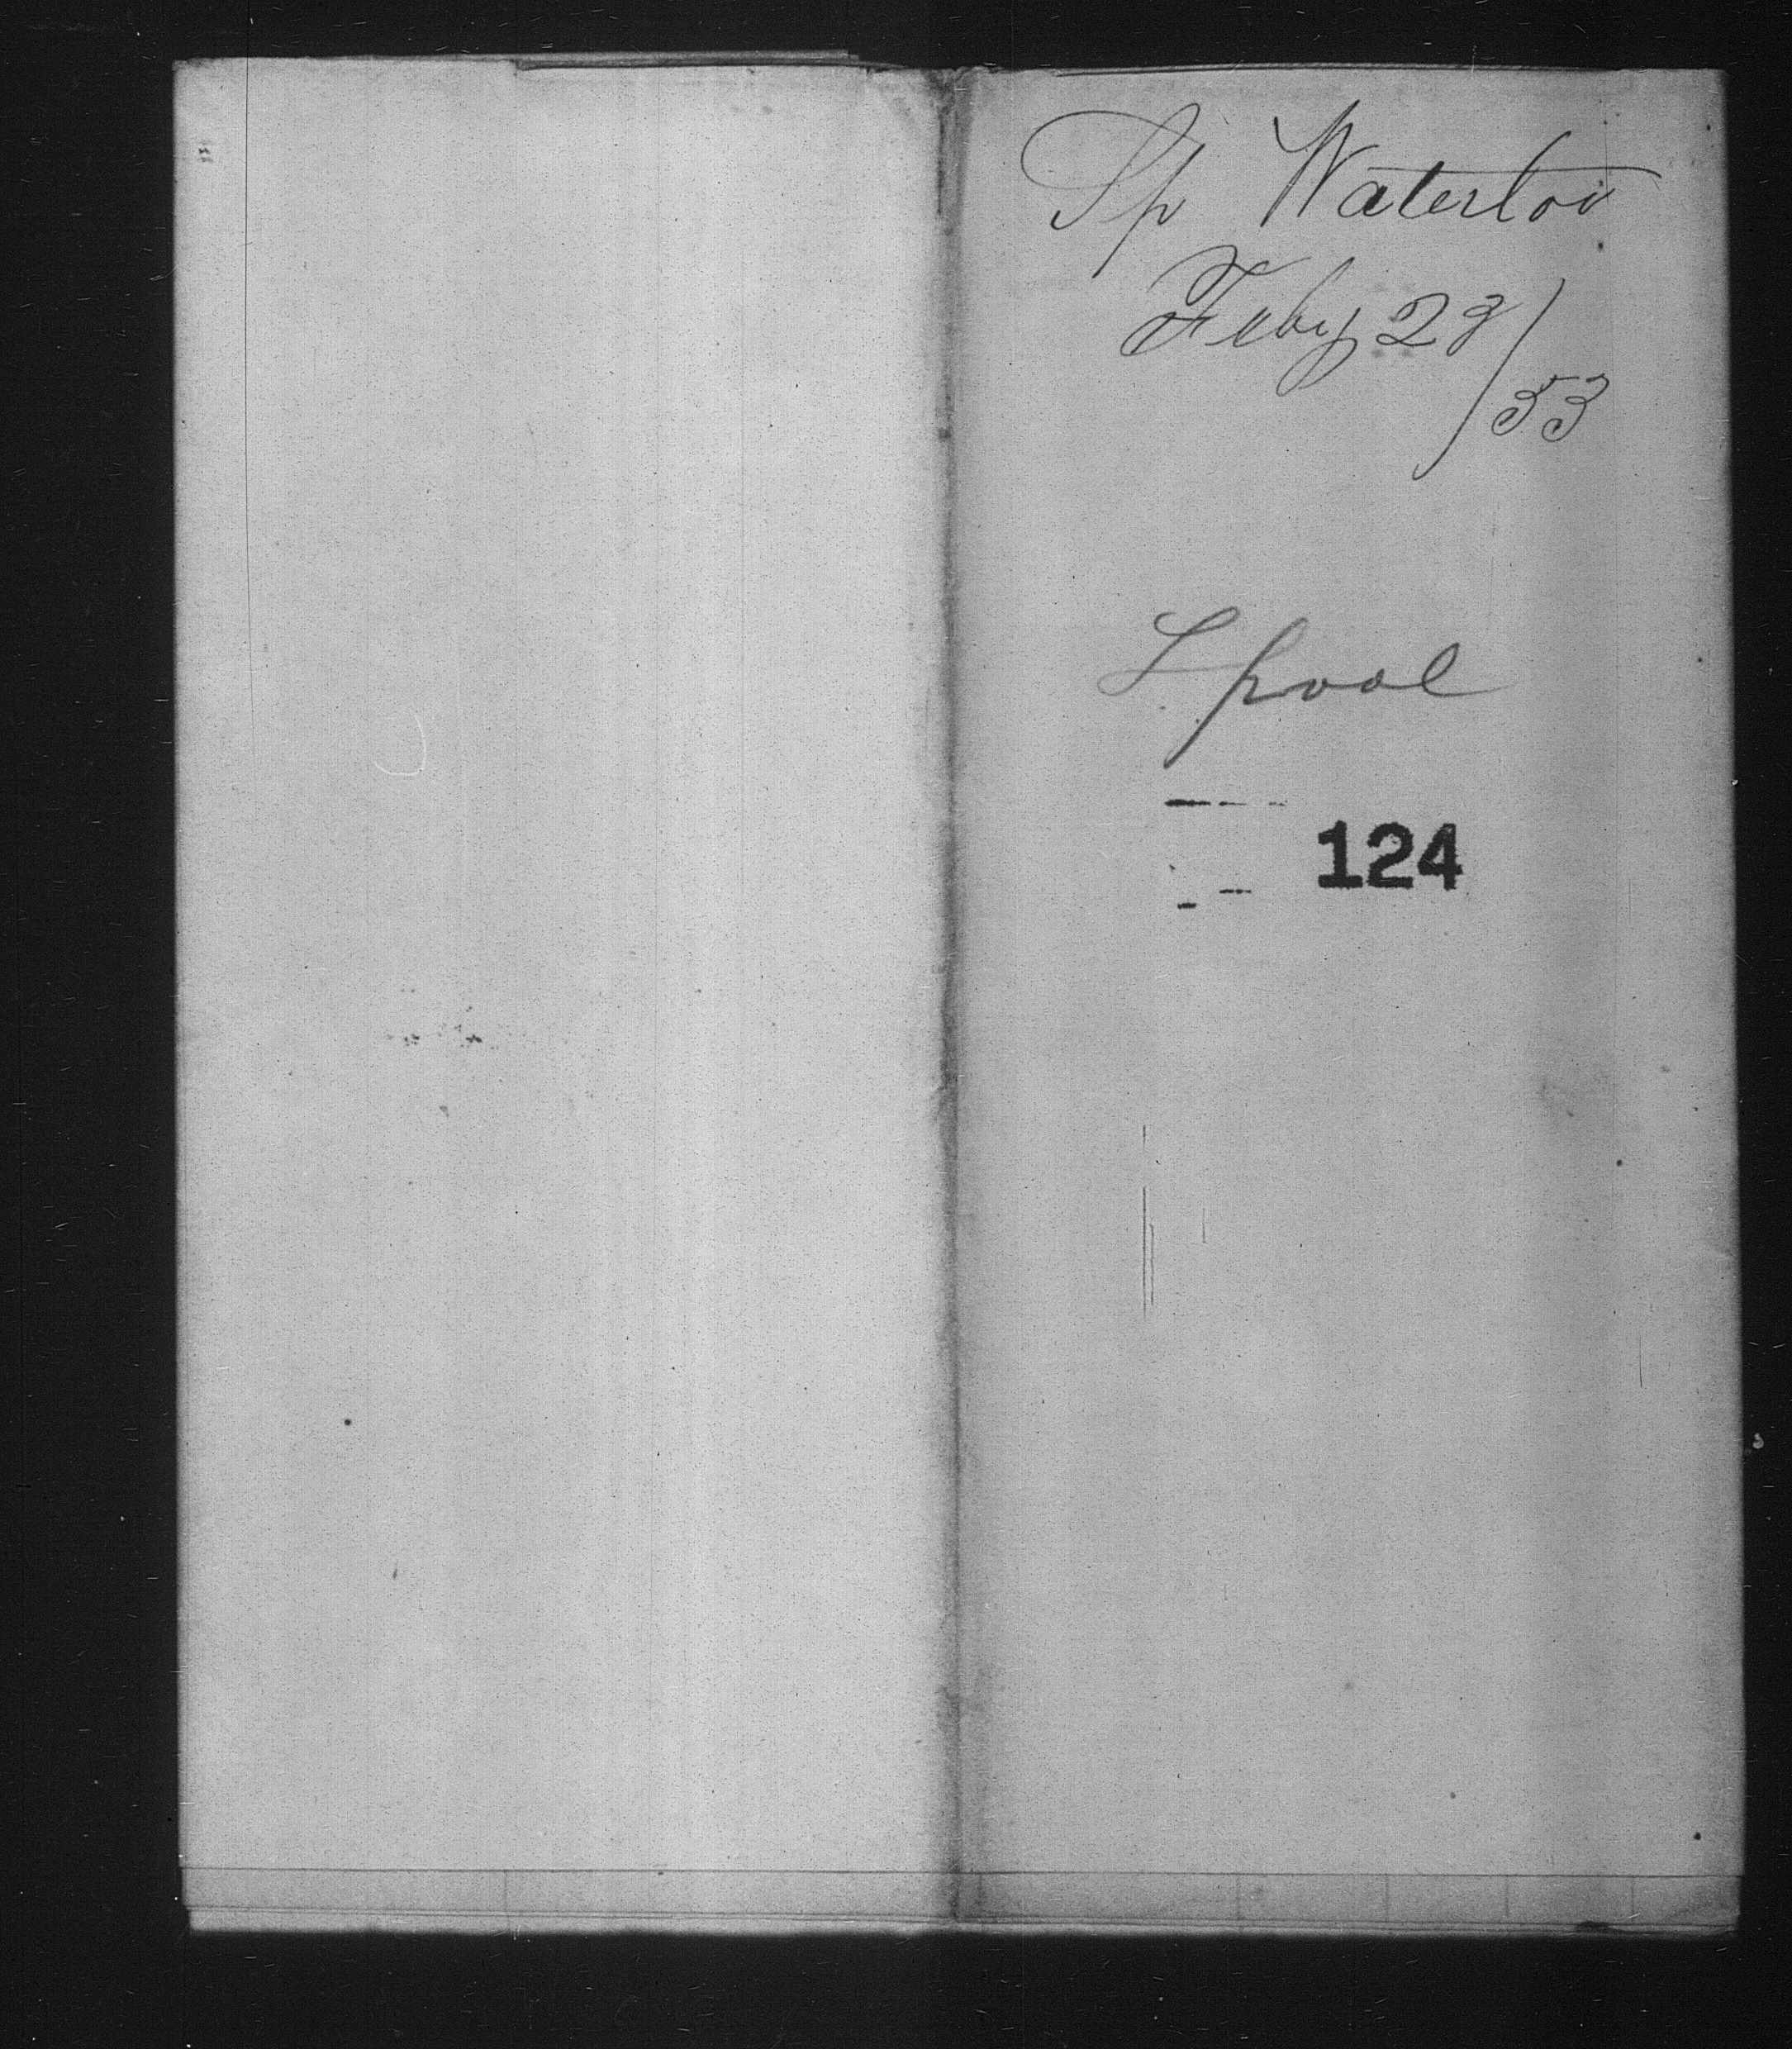 Sp Waterloo
Feby 28/53
L pool
124